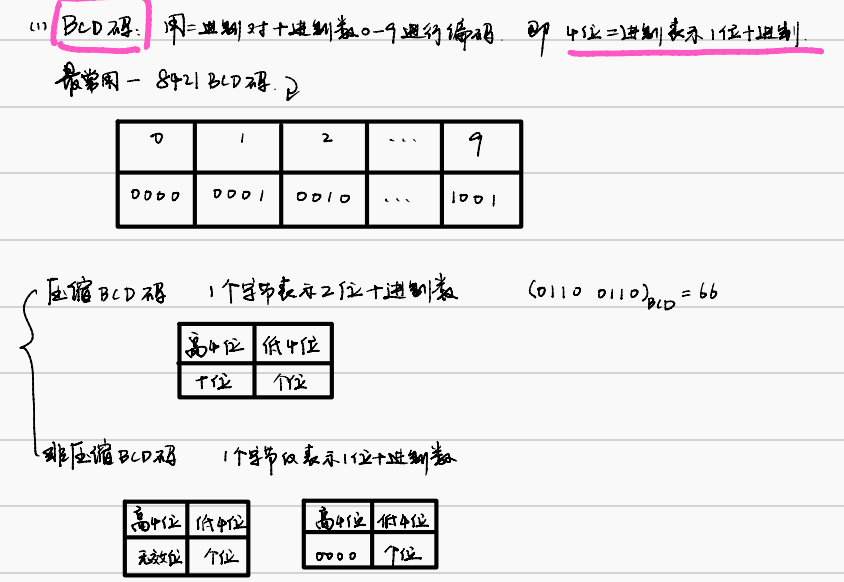 (1) BCD码: 用二进制对十进制数0~9进行编码. 即 4位二进制表示1位十进制.
最常用一 8421 BCD码.
0 1 2 ... 9
0000 0001 0010 ... 1001
压缩BCD码 1个字节表示2位十进制数 (0110 0110)BCD = 66
高4位 低4位
十位 个位
非压缩BCD码 1个字节仅表示1位十进制数
高4位 低4位 高4位 低4位
无效位 个位 0000 个位